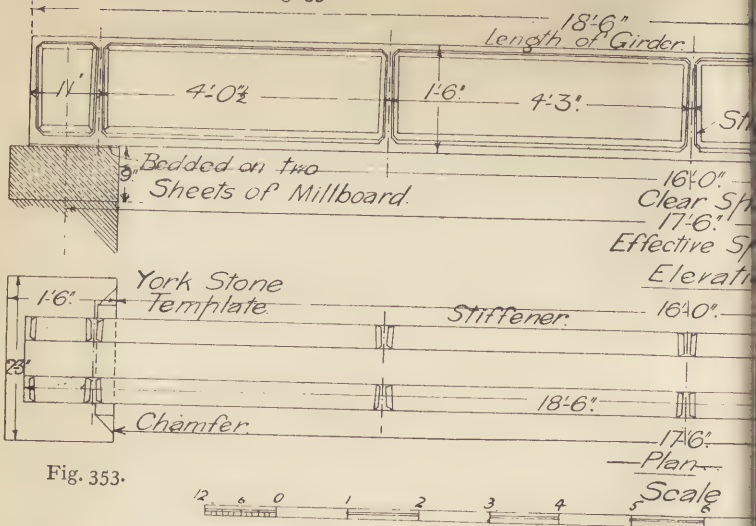 18'-6"
Length of Girder.
11"
4'-0½"
1'-6"
4'-3"
9"
Bedded on two
Sheets of Millboard.
16'-0"
Clear
17'-6"
Effective
York Stone
Template
1'-6"
Stiffener.
16'-0"
2'-3"
18'-6"
Chamfer.
17'-6"
Plan
Fig. 353.
Scale
12 6 0 1 2 3 4 5 6